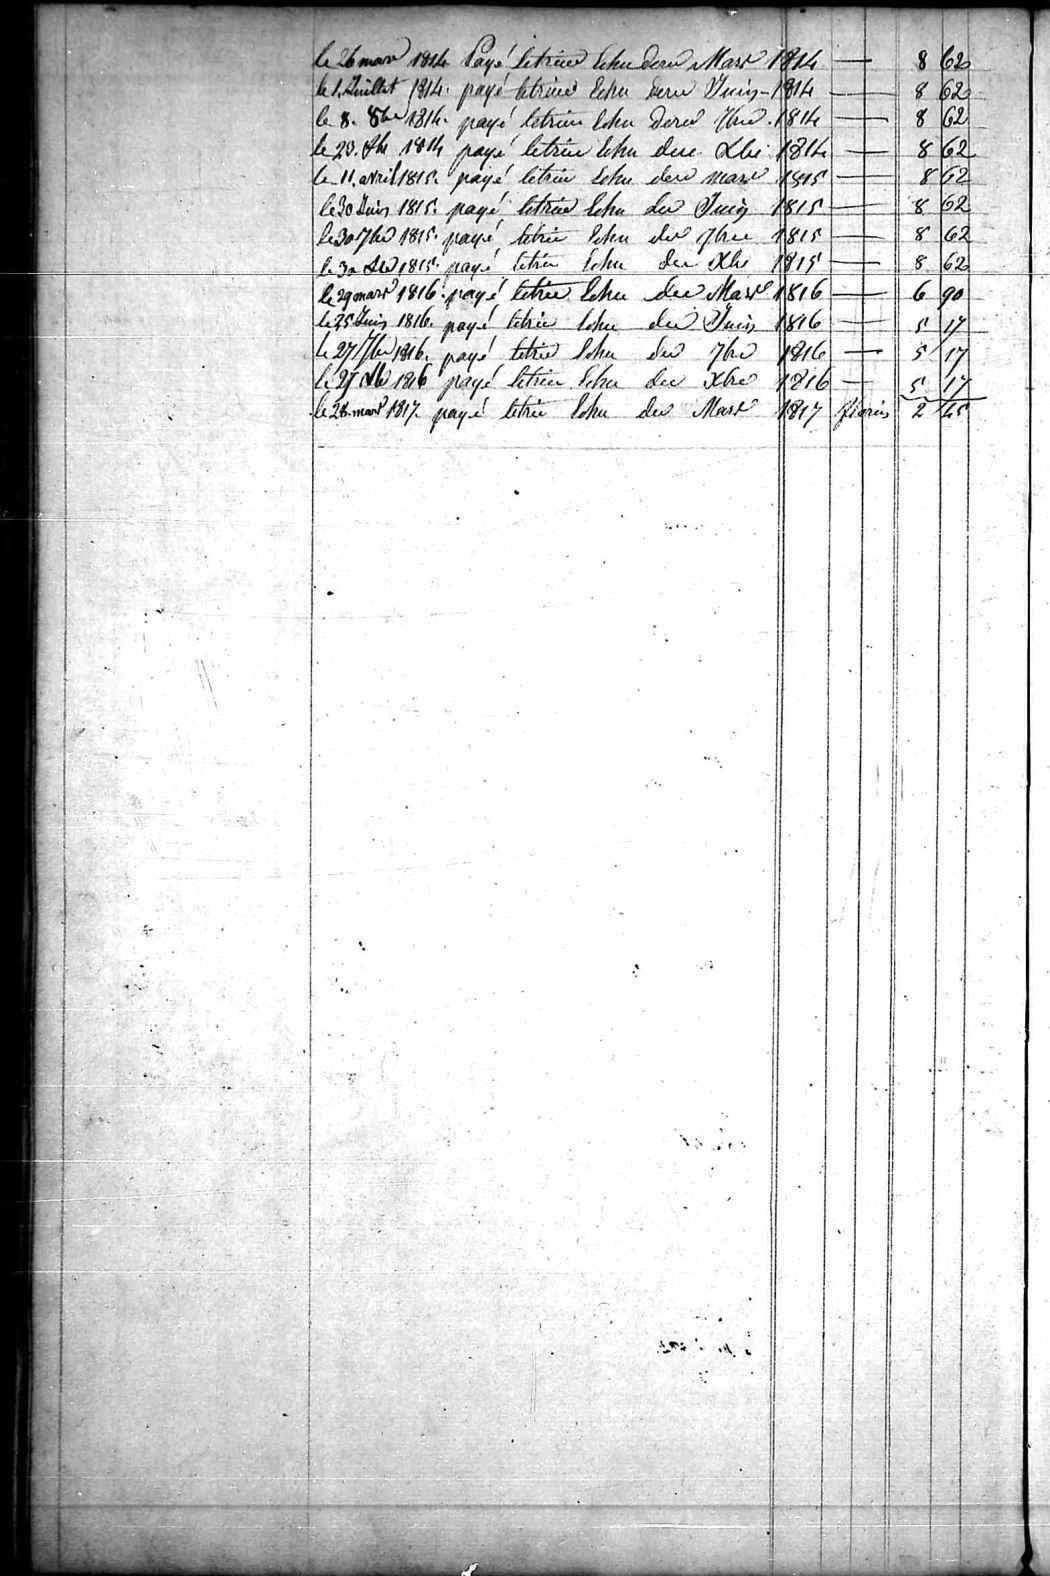 le 26 mars 1814 Payé letrim Echu dern Mars 1814 — 8 62
le 1. Juillet 1814. payé letrim Echu dern Juin - 1814 — 8 62
le 8. 8bre 1814. payé letrim Echu dern 7bre. 1814 — 8 62
le 23. Xbre 1814 payé letrim Echu der Xbre 1814 — 8 62
le 11. avril 1815. payé letrim Echu der mars 1815 — 8 62
le 30 Juin 1815. payé letrim Echu der Juin 1815 — 8 62
le 30 7bre 1815. payé letrim Echu der 7bre 1815 — 8 62
le 30 Xbre 1815. payé letrim Echu der Xbre 1815 — 8 62
le 29 mars 1816. payé letrim Echu der Mars 1816 — 6 90
le 25 Juin 1816. payé letrim Echu der Juin 1816 — 5 17
le 27 7bre 1816. payé letrim Echu der 7bre 1816 — 5 17
le 27 Xbre 1816 payé letrim Echu der Xbre 1816 — 5 17
le 28. mars 1817. payé letrim Echu der Mars 1817 florins 2 45